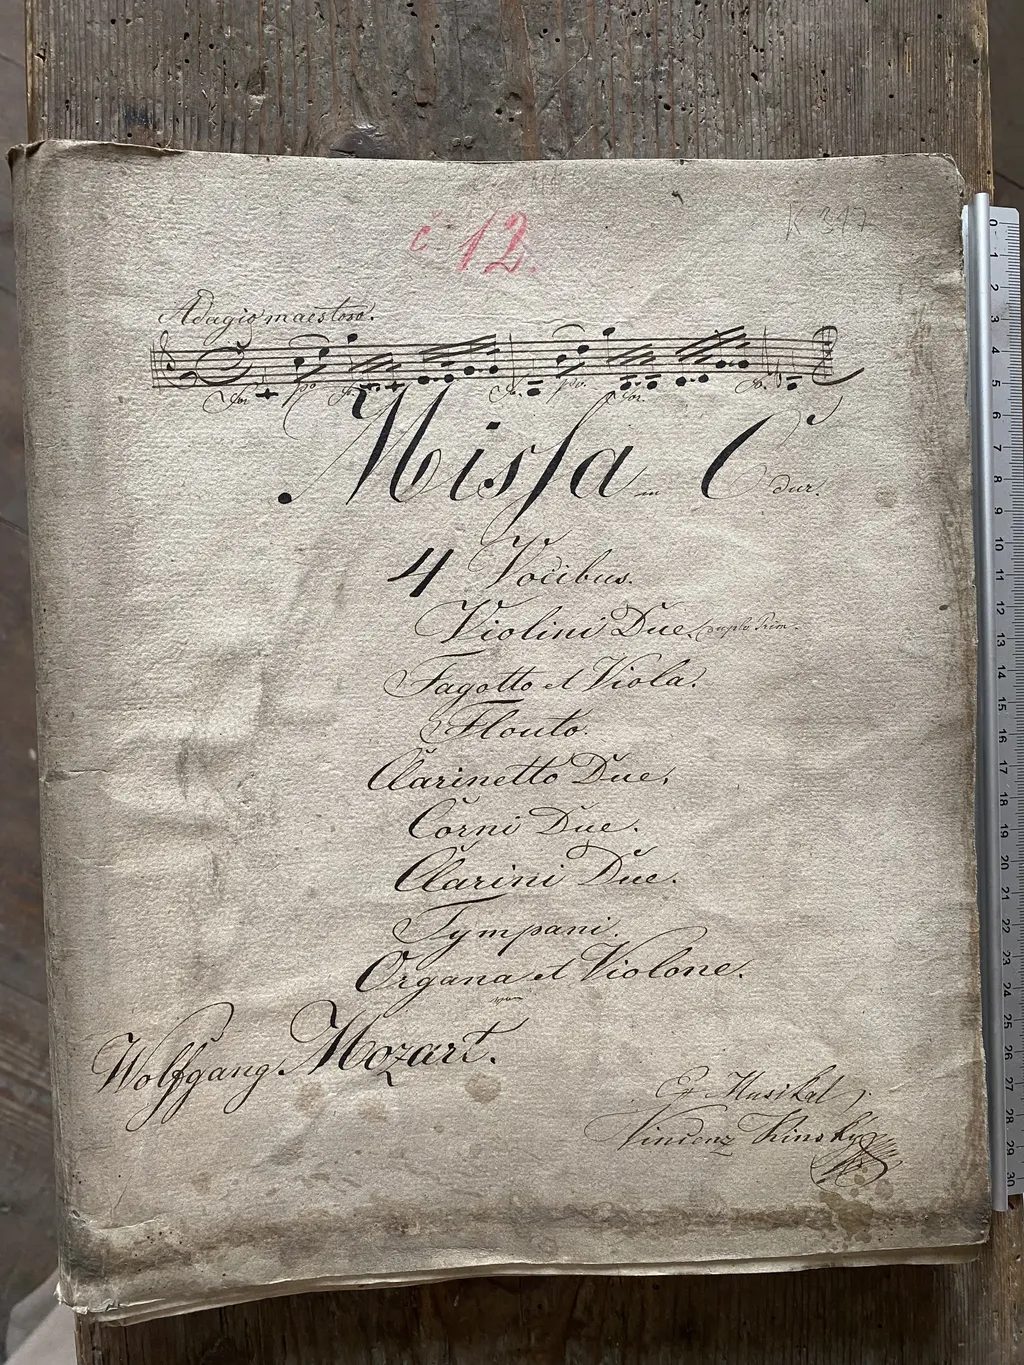 č 12.
K 317
Adagio maestoso.
for po for for po. for. fo.
Missa in C dur.
4 Vocibus.
Violini Due. duplo Prim.
Fagotto et Viola.
Flauto.
Clarinetto Due.
Corni Due.
Clarini Due.
Tympani.
Organa et Violone.
von
Wolfgang Mozart.
Ex Musikal
Vincenz Kinsky
0 1 2 3 4 5 6 7 8 9 10 11 12 13 14 15 16 17 18 19 20 21 22 23 24 25 26 27 28 29 30